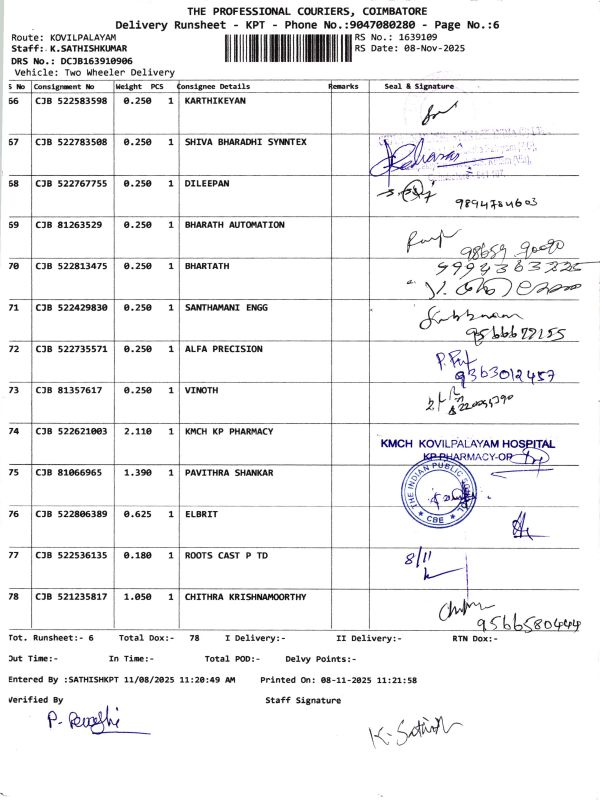 THE PROFESSIONAL COURIERS, COIMBATORE
Delivery Runsheet - KPT - Phone No.:9047080280 - Page No.:6
Route: KOVILPALAYAM
RS No.: 1639109
Staff: K.SATHISHKUMAR
RS Date: 08-Nov-2025
DRS No.: DCJB163910906
Vehicle: Two Wheeler Delivery
S No Consignment No Weight PCS Consignee Details Remarks Seal & Signature
66 CJB 522583598 0.250 1 KARTHIKEYAN
67 CJB 522783508 0.250 1 SHIVA BHARADHI SYNNTEX
68 CJB 522767755 0.250 1 DILEEPAN
9894784603
69 CJB 81263529 0.250 1 BHARATH AUTOMATION
70 CJB 522813475 0.250 1 BHARTATH
71 CJB 522429830 0.250 1 SANTHAMANI ENGG
72 CJB 522735571 0.250 1 ALFA PRECISION
9363012457
73 CJB 81357617 0.250 1 VINOTH
74 CJB 522621003 2.110 1 KMCH KP PHARMACY
KMCH KOVILPALAYAM HOSPITAL
KP PHARMACY-OP
75 CJB 81066965 1.390 1 PAVITHRA SHANKAR
THE INDIAN PUBLIC SCHOOL
CBE
76 CJB 522806389 0.625 1 ELBRIT
77 CJB 522536135 0.180 1 ROOTS CAST P TD
8/11
78 CJB 521235817 1.050 1 CHITHRA KRISHNAMOORTHY
9566580444
Tot. Runsheet:- 6 Total Dox:- 78 I Delivery:- II Delivery:- RTN Dox:-
Out Time:- In Time:- Total POD:- Delvy Points:-
Entered By :SATHISHKPT 11/08/2025 11:20:49 AM Printed On: 08-11-2025 11:21:58
Verified By Staff Signature
K. Sathish